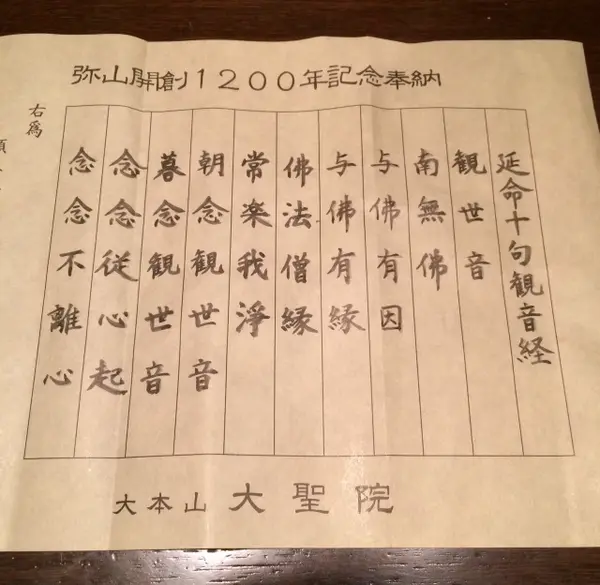 弥山開創1200年記念奉納
延命十句観音経
観世音
南無佛
与佛有因
与佛有縁
佛法僧縁
常楽我淨
朝念観世音
暮念観世音
念念従心起
念念不離心
右為
大本山 大聖院